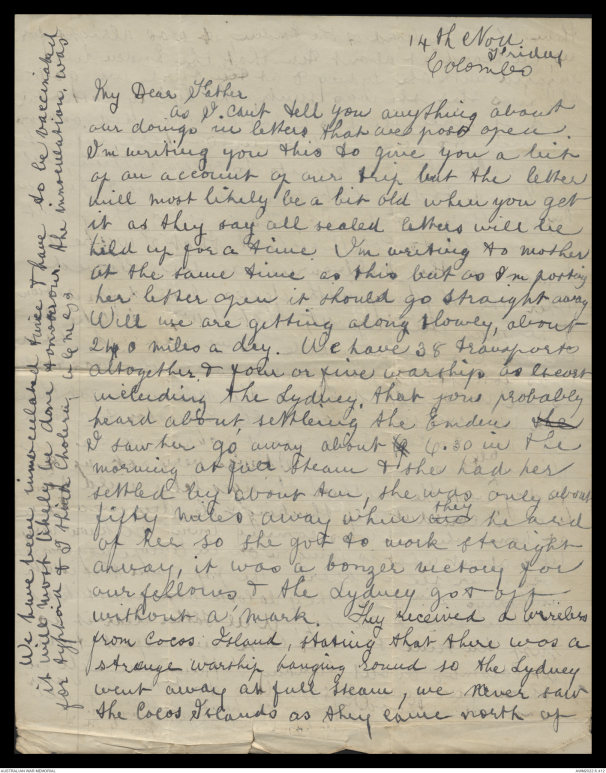 14th Nov
Friday
Colombo
My Dear Father
As I can't tell you anything about
our doings in letters that are post open.
I'm writing you this to give you a bit
of an account of our trip but the letter
will most likely be a bit old when you get
it as they say all sealed letters will be
held up for a time. I'm writing to mother
at the same time as this but as I'm posting
her letter open it should go straight away
Well we are getting along slowly, about
240 miles a day. We have 38 transports
altogether & four or five warships as escort
including the Sydney, that you probably
heard about, settlering the Emden the
I saw her go away about 6.30 in the
morning at full steam & she had her
settled by about ten, she was only about
fifty miles away when they heard
of her so she got to work straight
away, it was a bonzer victory for
our fellows & the Sydney got off
without a mark. They received a wireless
from Cocos Island, stating that there was a
strange warship hanging round so the Sydney
went away at full steam, we never saw
the Cocos Islands as they came north of
We have been innoculated twice & have to be vaccinated
it will most likely be done tomorrow. The innoculation, was
for typhoid & I think Cholera,
AUSTRALIAN WAR MEMORIAL